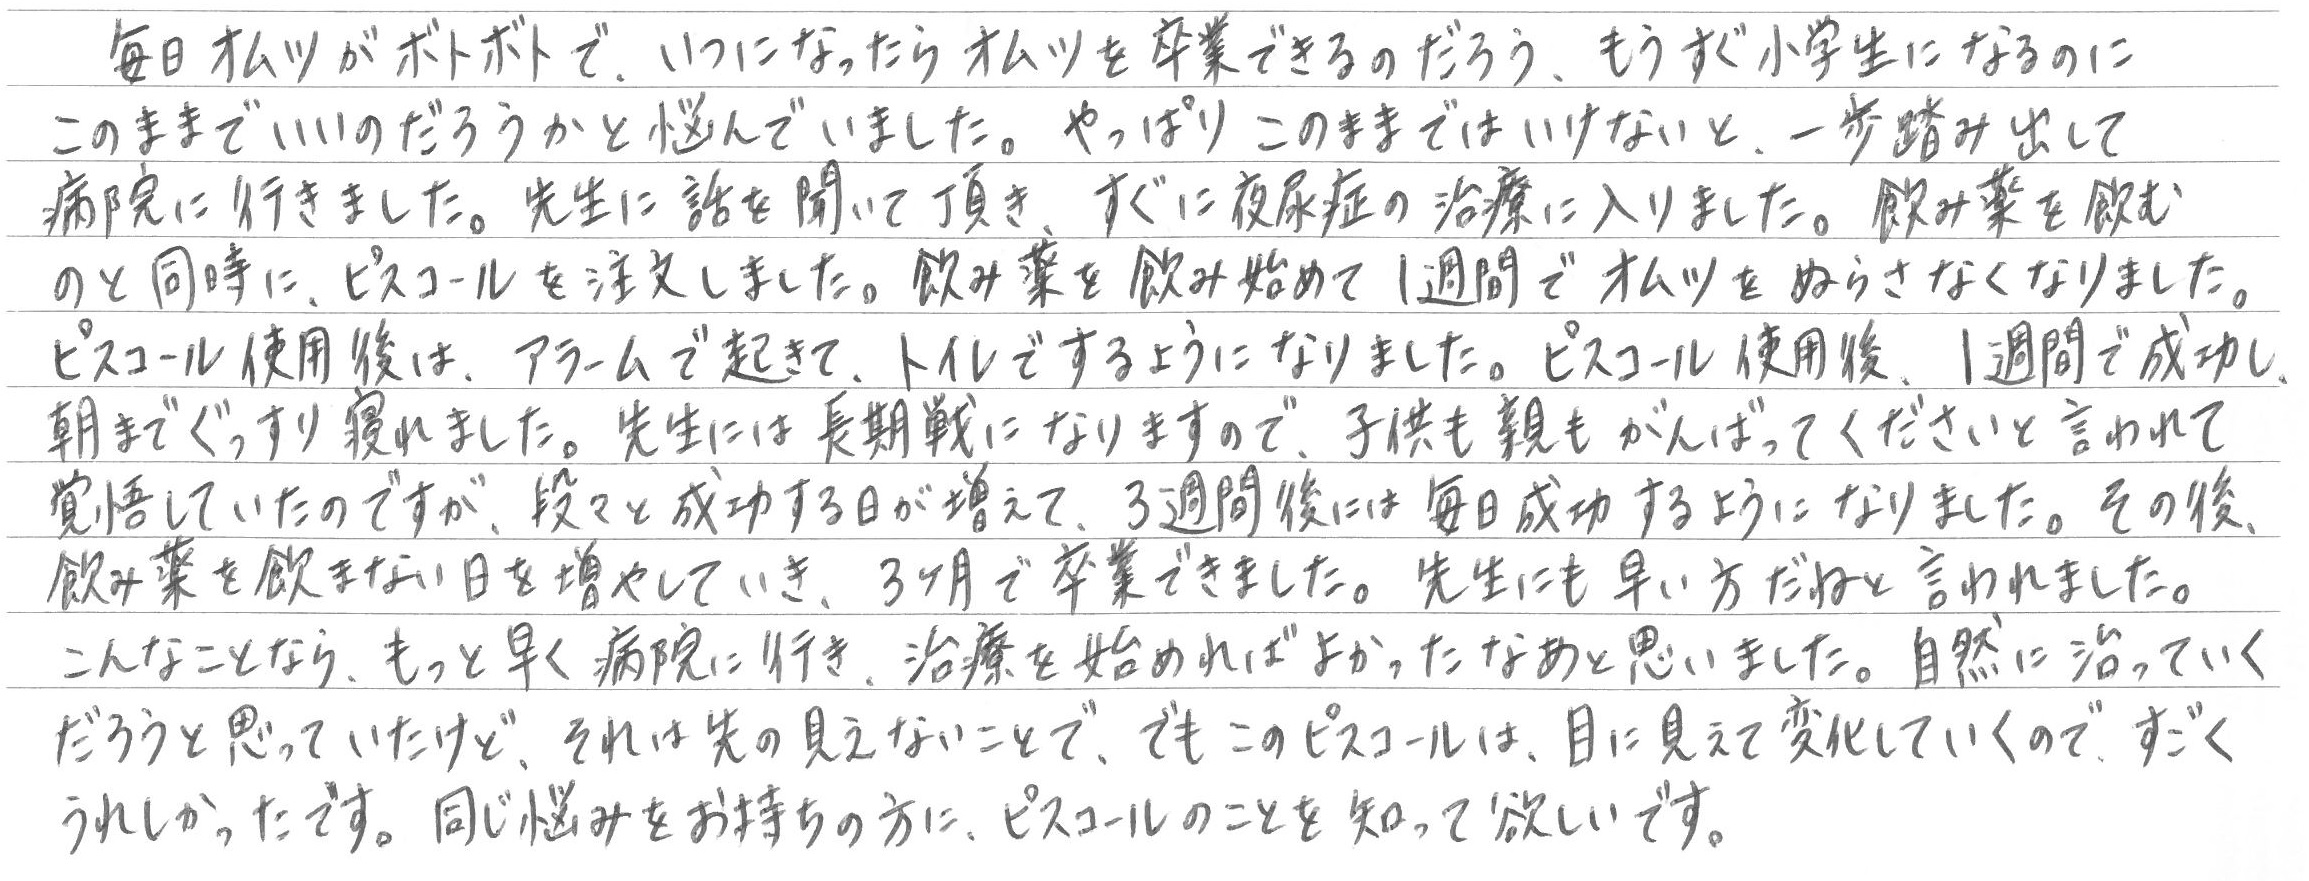 毎日オムツがボトボトで、いつになったらオムツを卒業できるのだろう、もうすぐ小学生になるのに
このままでいいのだろうかと悩んでいました。やっぱりこのままではいけないと、一歩踏み出して
病院に行きました。先生に話を聞いて頂き、すぐに夜尿症の治療に入りました。飲み薬を飲む
のと同時に、ピスコールを注文しました。飲み薬を飲み始めて1週間でオムツをぬらさなくなりました。
ピスコール使用後は、アラームで起きて、トイレでするようになりました。ピスコール使用後、1週間で成功し、
朝までぐっすり寝れました。先生には長期戦になりますので、子供も親もがんばってくださいと言われて
覚悟していたのですが、段々と成功する日が増えて、3週間後には毎日成功するようになりました。その後、
飲み薬を飲まない日を増やしていき、3ケ月で卒業できました。先生にも早い方だねと言われました。
こんなことなら、もっと早く病院に行き、治療を始めればよかったなあと思いました。自然に治っていく
だろうと思っていたけど、それは先の見えないことで、でもこのピスコールは、目に見えて変化していくので、すごく
うれしかったです。同じ悩みをお持ちの方に、ピスコールのことを知って欲しいです。